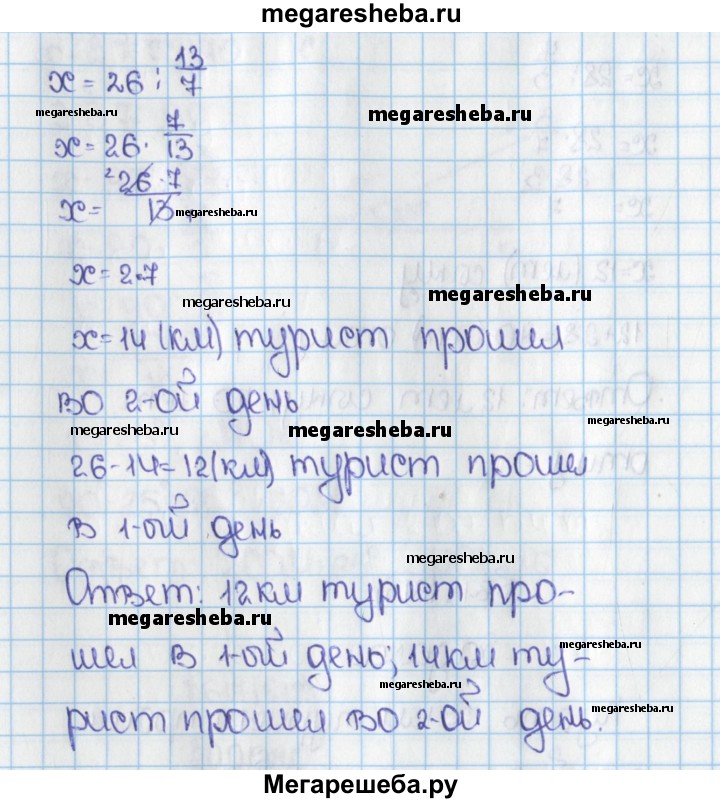 megaresheba.ru
x = 26 : 13/7
megaresheba.ru
megaresheba.ru
x = 26 · 7/13
x = 2 26 · 7 / 13
megaresheba.ru
x = 2·7
megaresheba.ru
megaresheba.ru
x = 14 (км) турист прошел
во 2-ой день
megaresheba.ru
megaresheba.ru
megaresheba.ru
26 - 14 = 12 (км) турист прошел
в 1-ый день
megaresheba.ru
Ответ: 12 км турист про-
megaresheba.ru
шел в 1-ый день; 14 км ту-
megaresheba.ru
megaresheba.ru
рист прошел во 2-ой день.
megaresheba.ru
Мегарешеба.ру